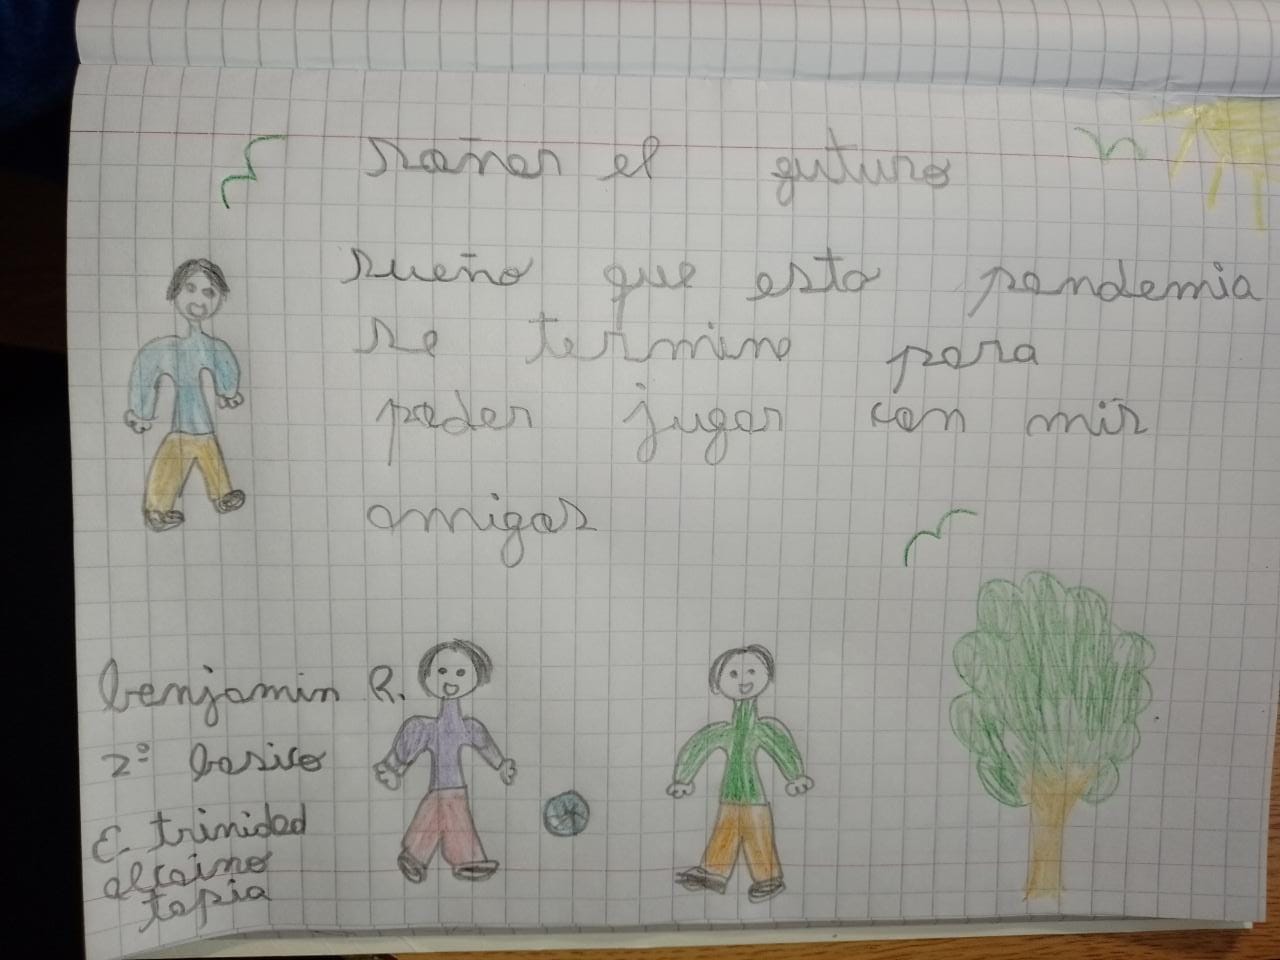 soñar el guturo
sueño que esta pandemia
se termine para
poder jugar con mis
amigos
benjamin R.
2º basico
E. trinidad
alcaino
tapia